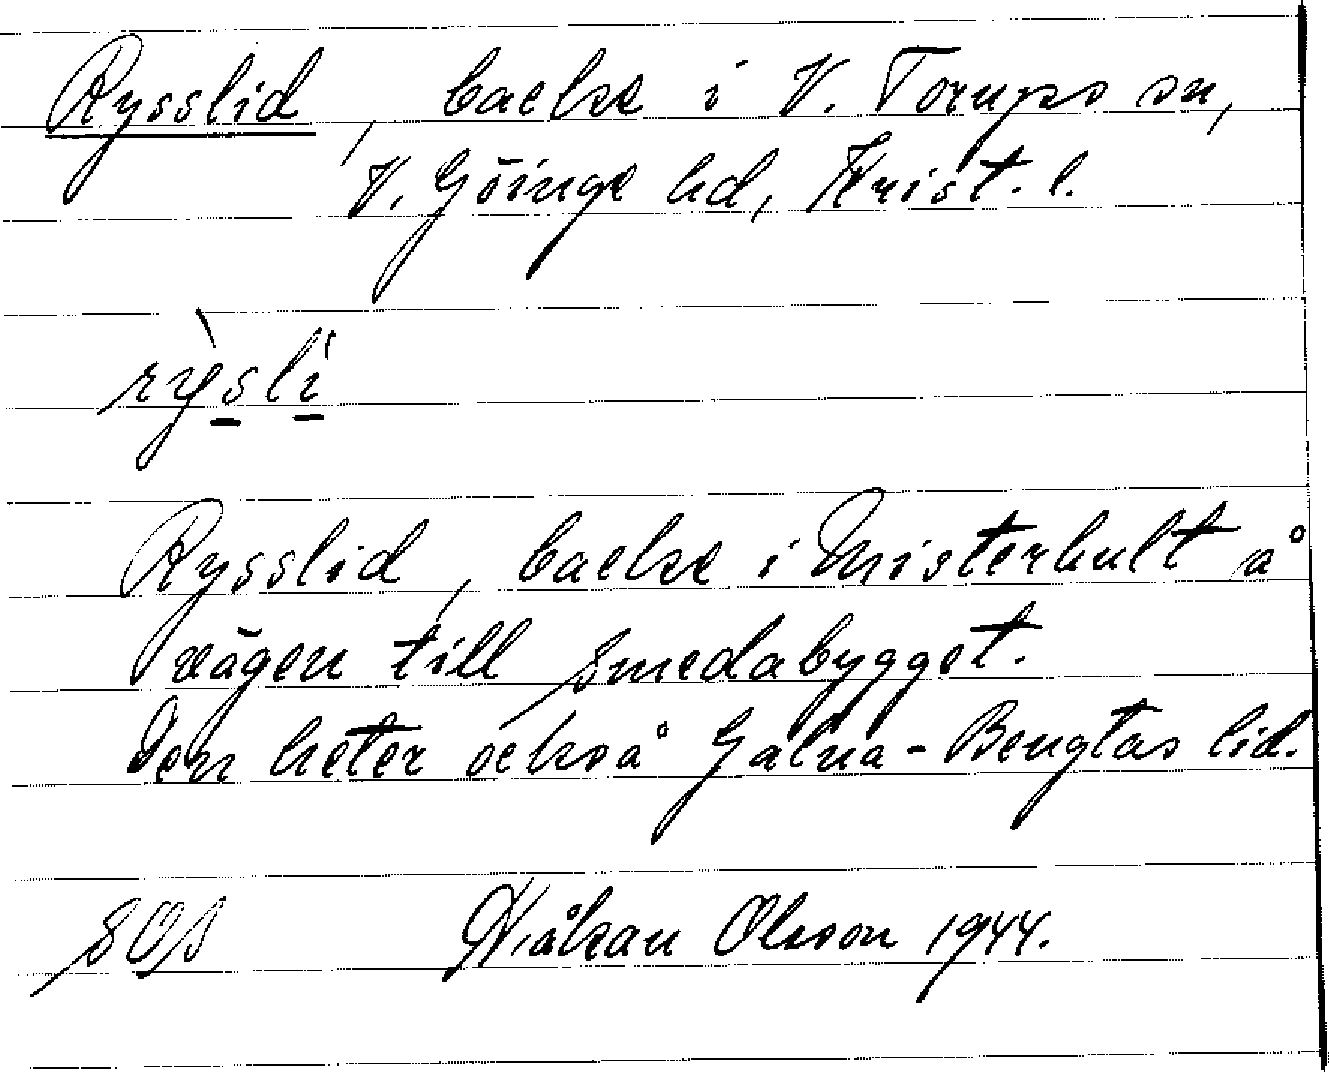 Rysslid, backe i V. Torups sn,
V. Göinge hd, Krist. l.
rỳslí
Rysslid, backe i Misterhult å
vägen till Smedabygget.
Den heter också Galna-Bengtas lid.
SOS Håkan Olsson 1944.